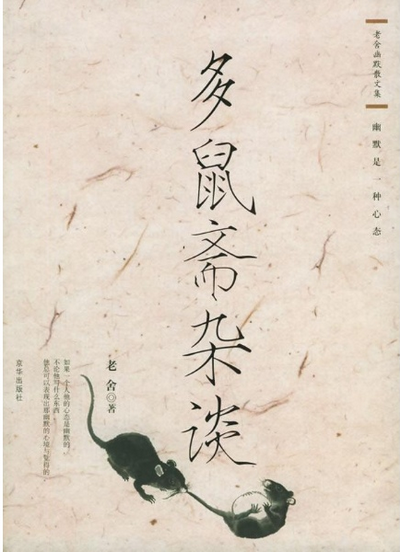 老舍幽默散文集
幽默是一种心态
多鼠斋杂谈
老舍◎著
如果一个人他的心态是幽默的,
不论他写什么东西
总是可以表现出那幽默的心境与
京华出版社